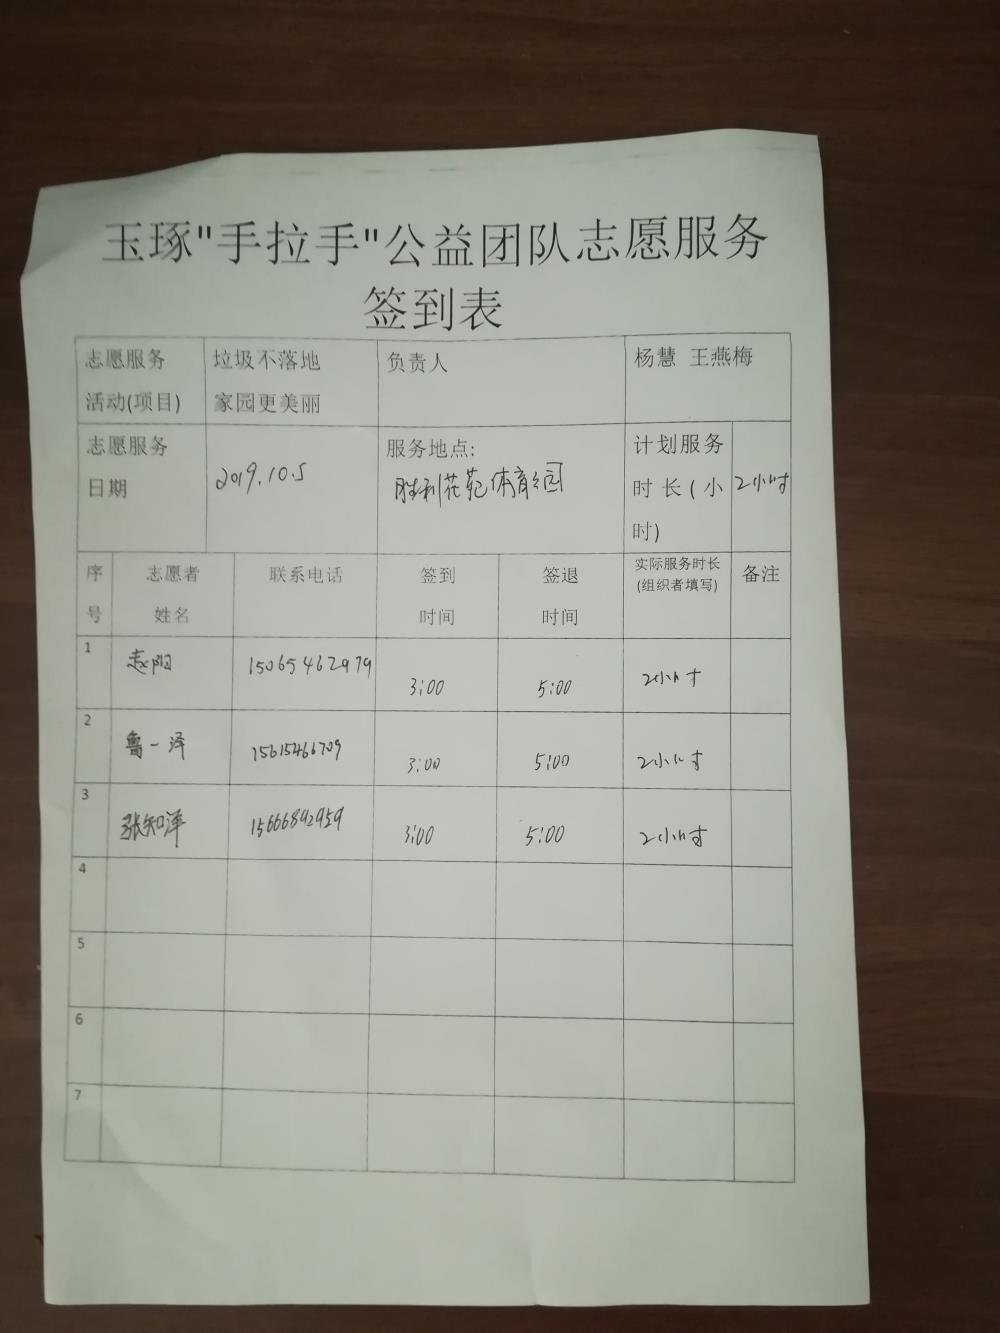 玉琢"手拉手"公益团队志愿服务
签到表
志愿服务 活动(项目)
垃圾不落地 家园更美丽
负责人
杨慧 王燕梅
志愿服务 日期
2019.10.5
服务地点:
胜利花苑体育公园
计划服务
时长(小
时)
2小时
序号
志愿者 姓名
联系电话
签到 时间
签退 时间
实际服务时长
(组织者填写)
备注
1 15065462979 3:00 5:00 2小时
2 鲁一泽 15615466709 3:00 5:00 2小时
3 张知泽 15666892959 3:00 5:00 2小时
4
5
6
7